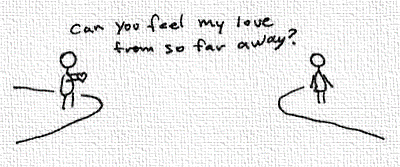 Can you feel my love
from so far away?